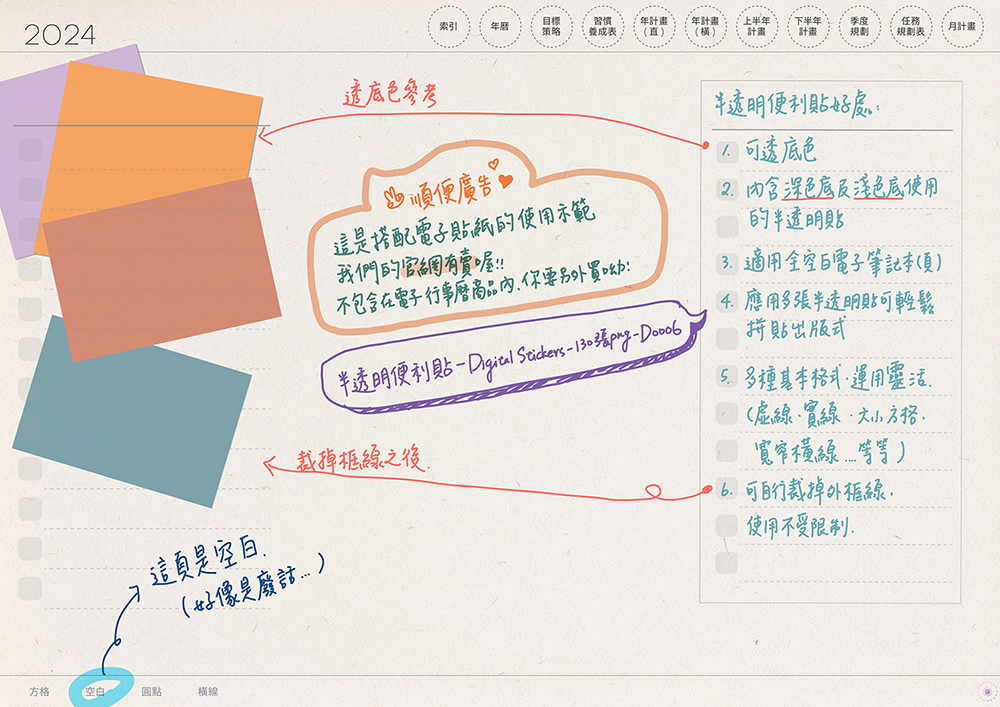 2024
索引
年曆
目標
策略
習慣
養成表
年計畫
(直)
年計畫
(橫)
上半年
計畫
下半年
計畫
季度
規劃
任務
規劃表
月計畫
透底色參考
順便廣告
這是搭配電子貼紙的使用示範
我們的官網有賣喔!!
不包含在電子行事曆商品內.你要另外買呦:
半透明便利貼-Digital Stickers-130張png-D0006
裁掉框線之後.
這頁是空白.
(好像是廢話...)
半透明便利貼好處:
1. 可透底色
2. 內含深色底及淺色底使用
的半透明貼
3. 適用全空白電子筆記本(頁)
4. 應用多張半透明貼可輕鬆
拼貼出版式
5. 多種基本格式.運用靈活.
(虛線.實線.大小方格.
寬窄橫線....等等)
6. 可自行裁掉外框線.
使用不受限制.
方格
空白
圓點
橫線